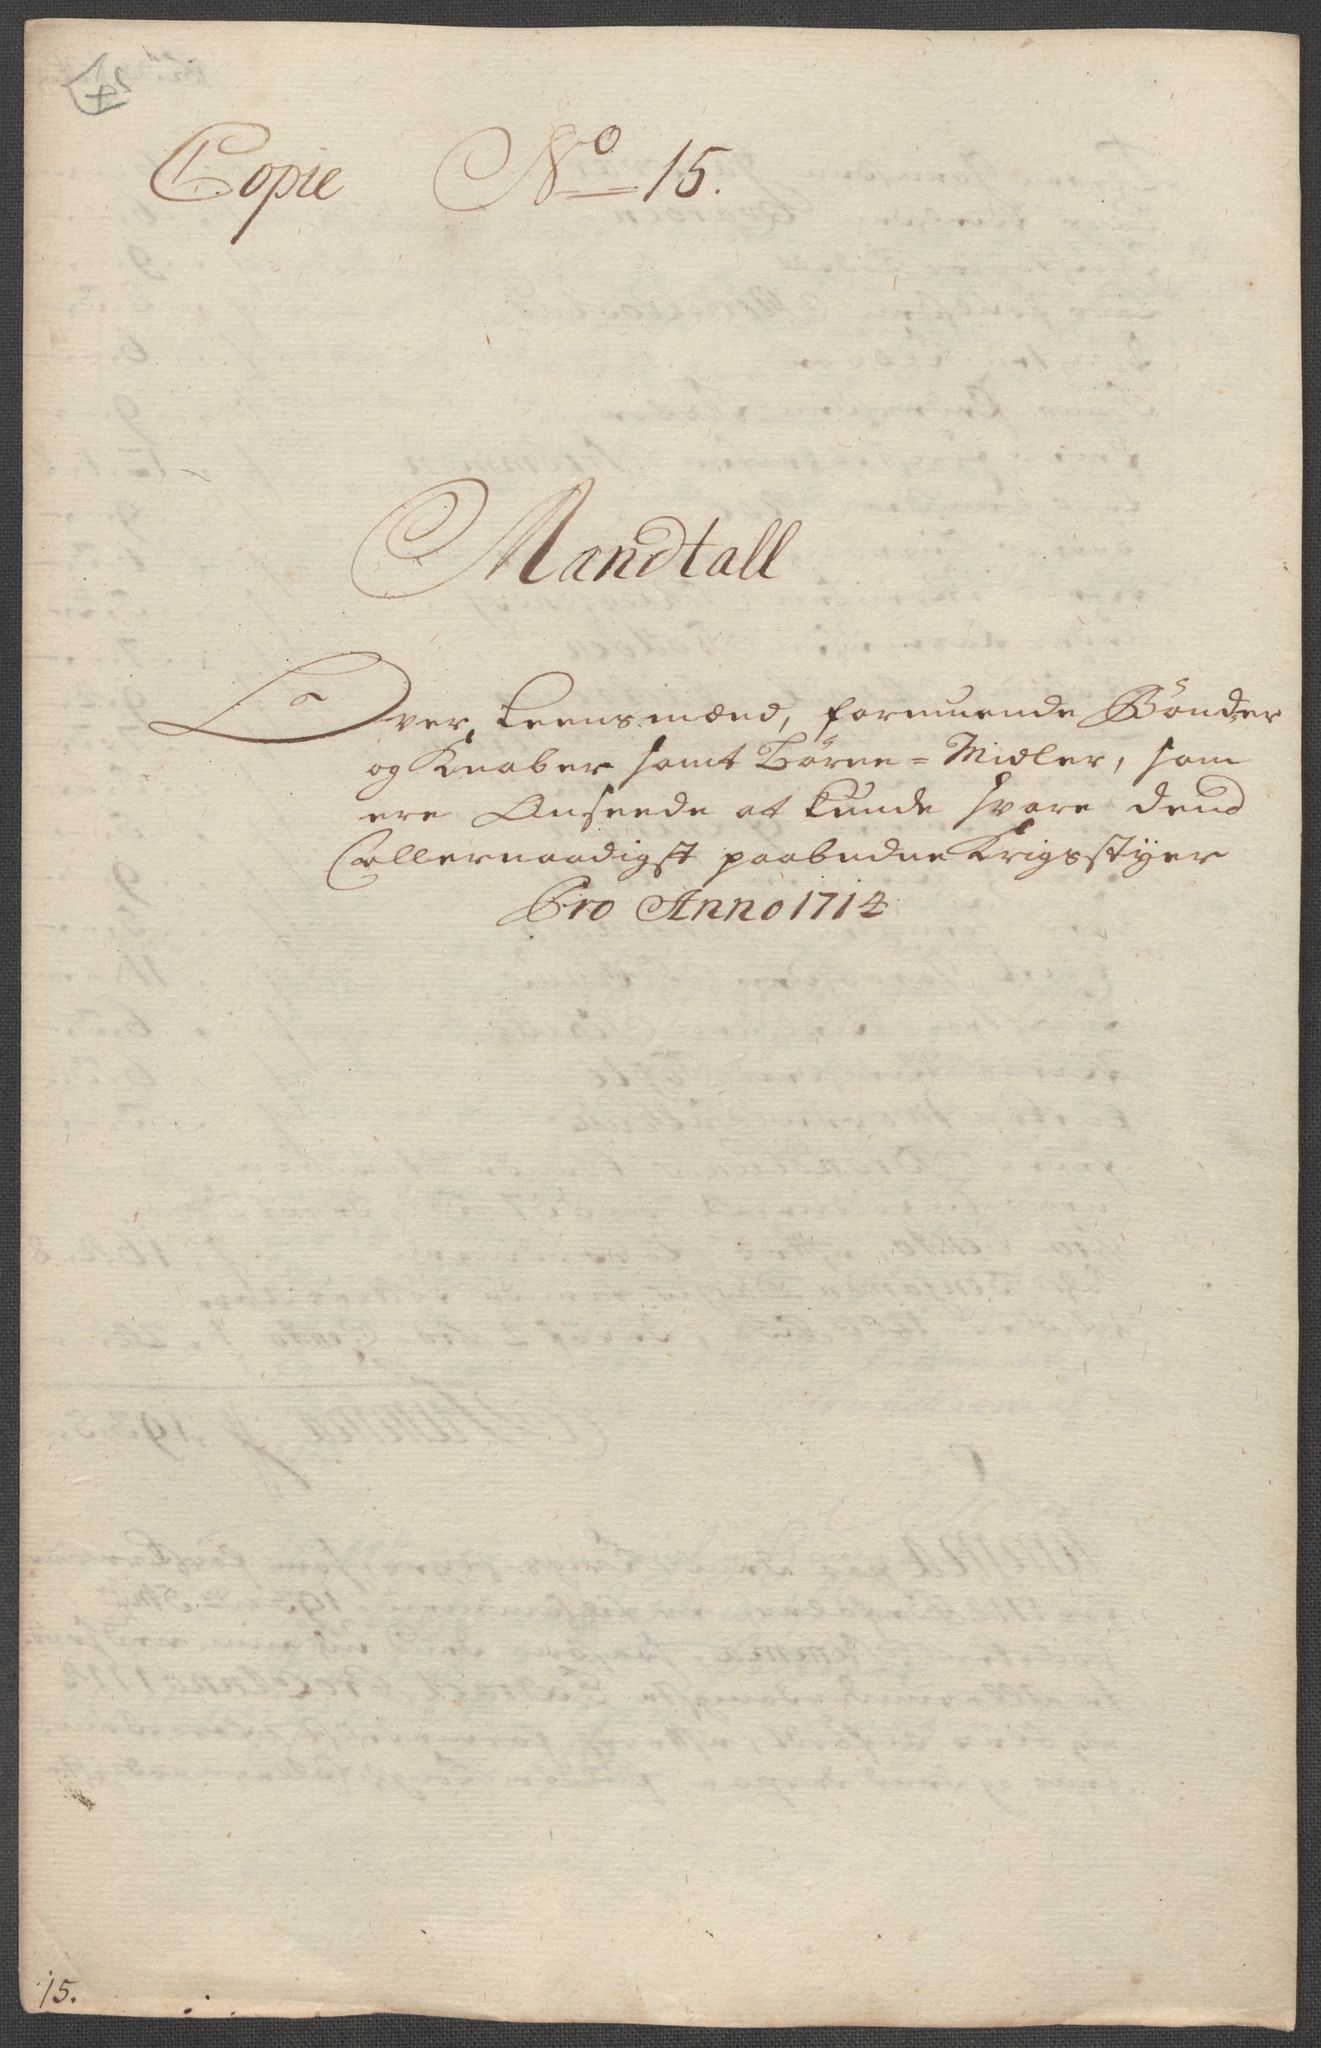 Copie No 15.
Mandtall
Over Leensmænd, formuende Bönder
og Knaber samt Börne=Midler, som
ere Anseede at kunde svare dend
allernaadigst paabudne Krigsstÿer
Pro Anno 1714
15.